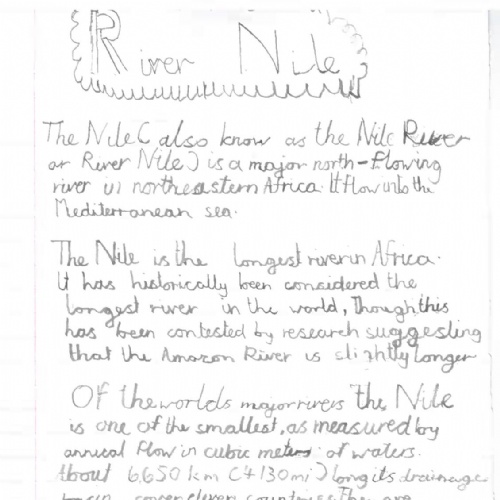 River Nile
The Nile ( also know as the Nile River
or River Nile ) is a major north-flowing
river in northeastern Africa. It flow into the
Mediterranean sea.
The Nile is the longest river in Africa.
It has historically been considered the
longest river in the world, Though this
has been contested by research suggesting
that the Amazon River is slightly longer
Of the worlds major rivers the Nile
is one of the smallest, as measured by
annual flow in cubic meters of waters.
About 6,650 km (4130mi) long its drainage
basin cover eleven countries The are